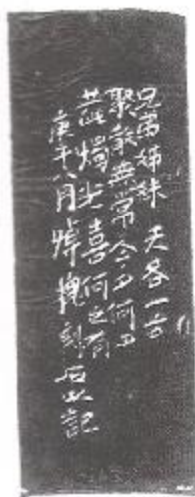 兄弟姊妹 天各一方
聚散無常 今夕何夕
共燭光喜何之有
庚午八月 焯槐刻石以記